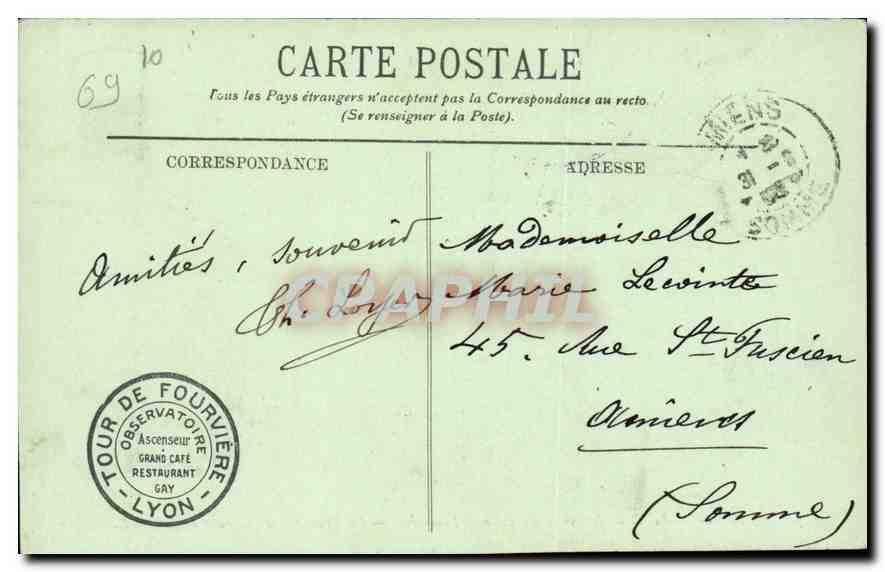 69
10
CARTE POSTALE
Tous les Pays étrangers n'acceptent pas la Correspondance au recto.
(Se renseigner à la Poste).
CORRESPONDANCE
ADRESSE
AMIENS
SOMME
Amitiés, souvenir
Ch. Loyer
Mademoiselle
Marie Lecointe
45. Rue St Fuscien
Amiens
(Somme)
CPAPHIL
TOUR DE FOURVIÈRE
OBSERVATOIRE
Ascenseur
GRAND CAFÉ
RESTAURANT
GAY
- LYON -